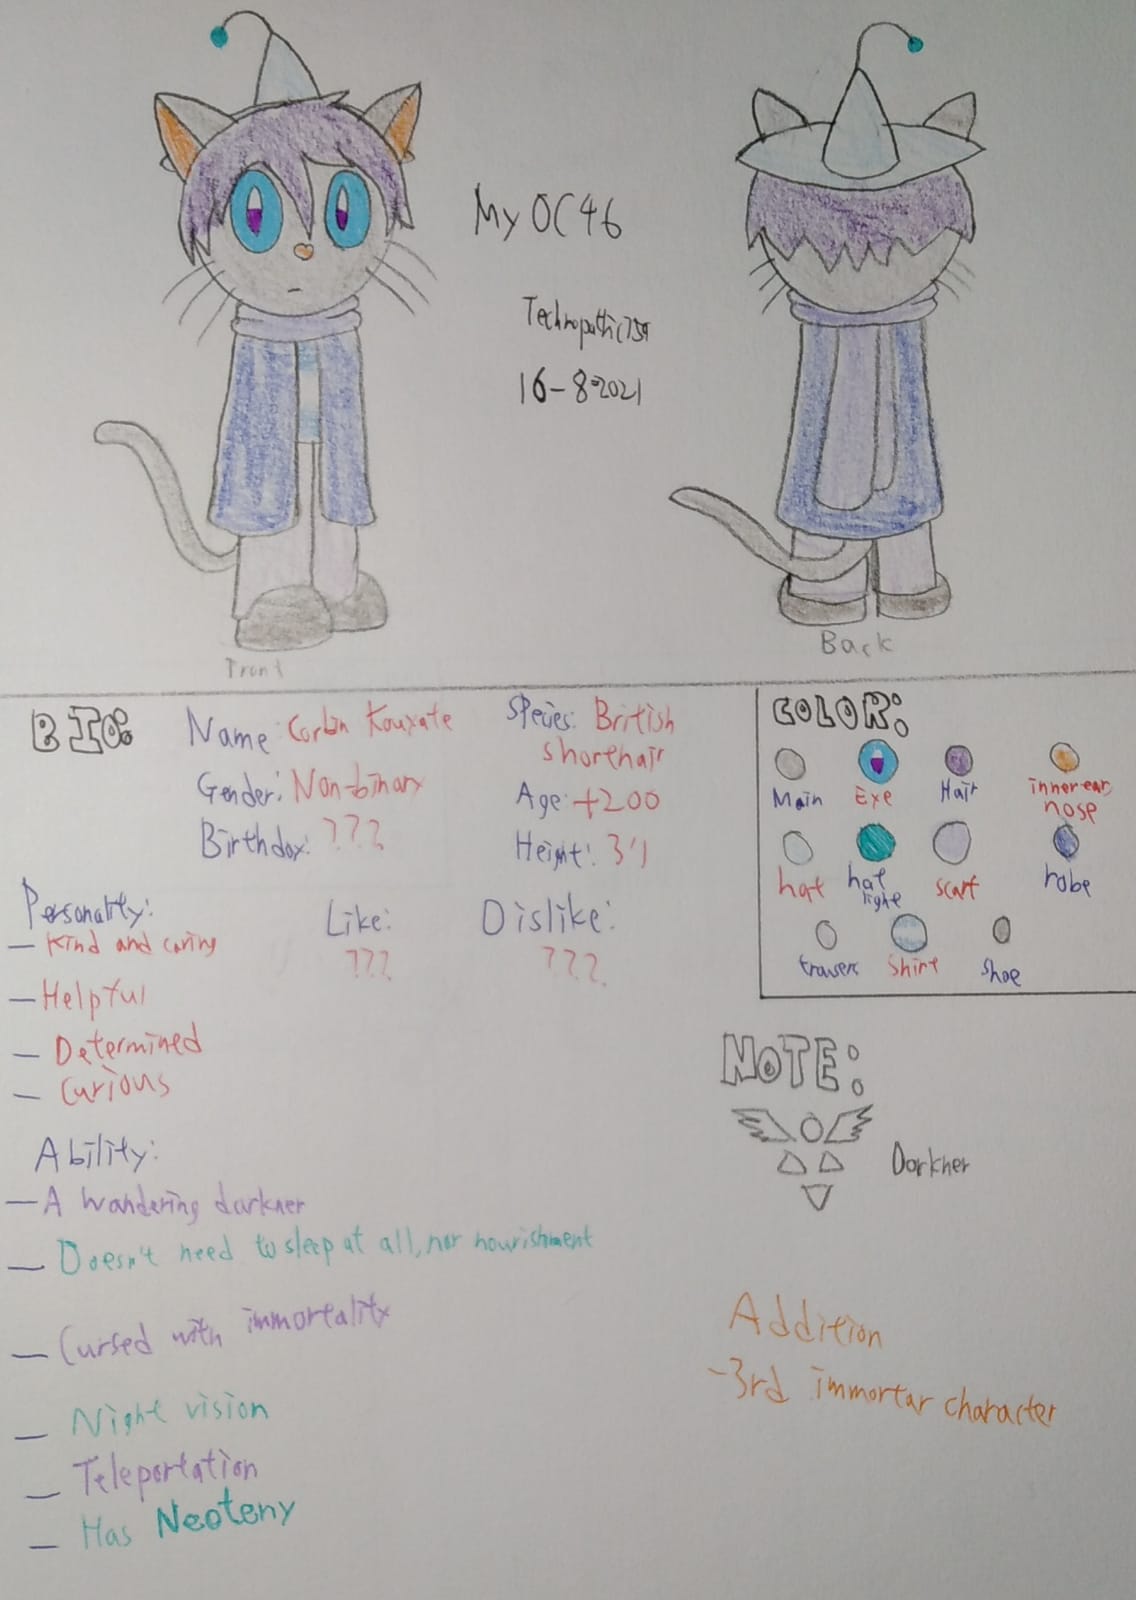 My OC46
Technopathic759
16-8-2021
Front
Back
BIO:
Name: Corbin Kouxate
Gender: Non-binary
Birthday: ???
Species: British
shorthair
Age: +200
Height: 3'1
Personality:
- Kind and caring
- Helpful
- Determined
- Curious
Like:
???
Dislike:
???
Ability:
- A wandering darkner
- Doesn't need to sleep at all, nor nourishment
- Cursed with immortality
- Night vision
- Teleportation
- Has Neoteny
COLOR:
Main
Eye
Hair
inner ear,
nose
hat
hat
light
scarf
robe
trousers
Shirt
Shoe
NOTE:
Darkner
Addition
- 3rd immortar character